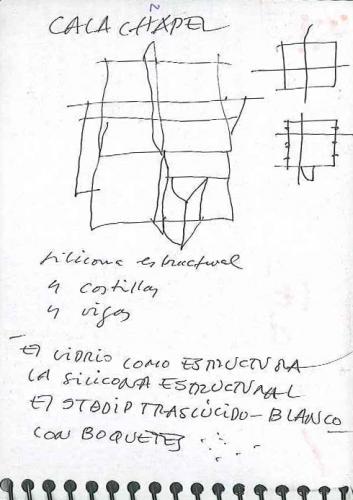 CALA CHAPEL
silicona estructural
4 costillas
4 vigas
El VIDRIO COMO ESTRUCTURA
LA SILICONA ESTRUCTURAL
El STADIP TRASLÚCIDO-BLANCO
CON BOQUETES